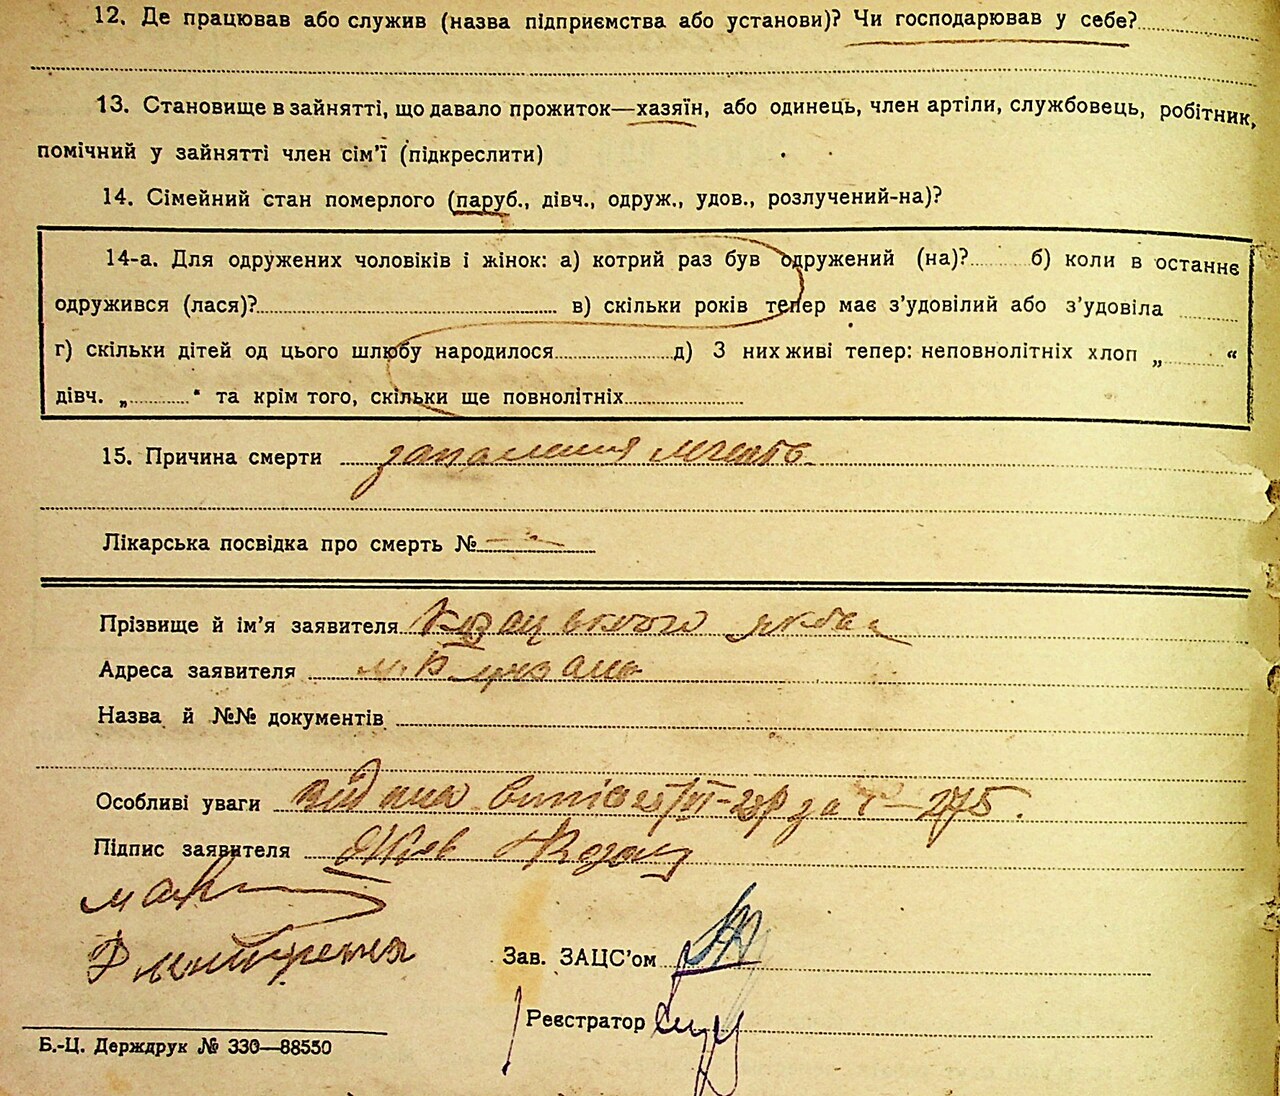 12. Де працював або служив (назва підприємства або установи)? Чи господарював у себе?
13. Становище в зайнятті, що давало прожиток—хазяїн, або одинець, член артіли, службовець, робітник,
помічний у зайнятті член сім'ї (підкреслити)
14. Сімейний стан померлого (паруб., дівч., одруж., удов., розлучений-на)?
14-а. Для одружених чоловіків і жінок: а) котрий раз був одружений (на)?...... б) коли в останнє
одружився (лася)?...... в) скільки років тепер має з'удовілий або з'удовіла ......
г) скільки дітей од цього шлюбу народилося...... д) З них живі тепер: неповнолітніх хлоп „......“
дівч. „......“ та крім того, скільки ще повнолітніх......
15. Причина смерти запалення легень
Лікарська посвідка про смерть № —
Прізвище й ім'я заявителя Якова
Адреса заявителя
Назва й №№ документів
Особливі уваги видана 275.
Підпис заявителя Яків
Зав. ЗАЦС'ом
Реєстратор
Б.-Ц. Держдрук № 330—88550